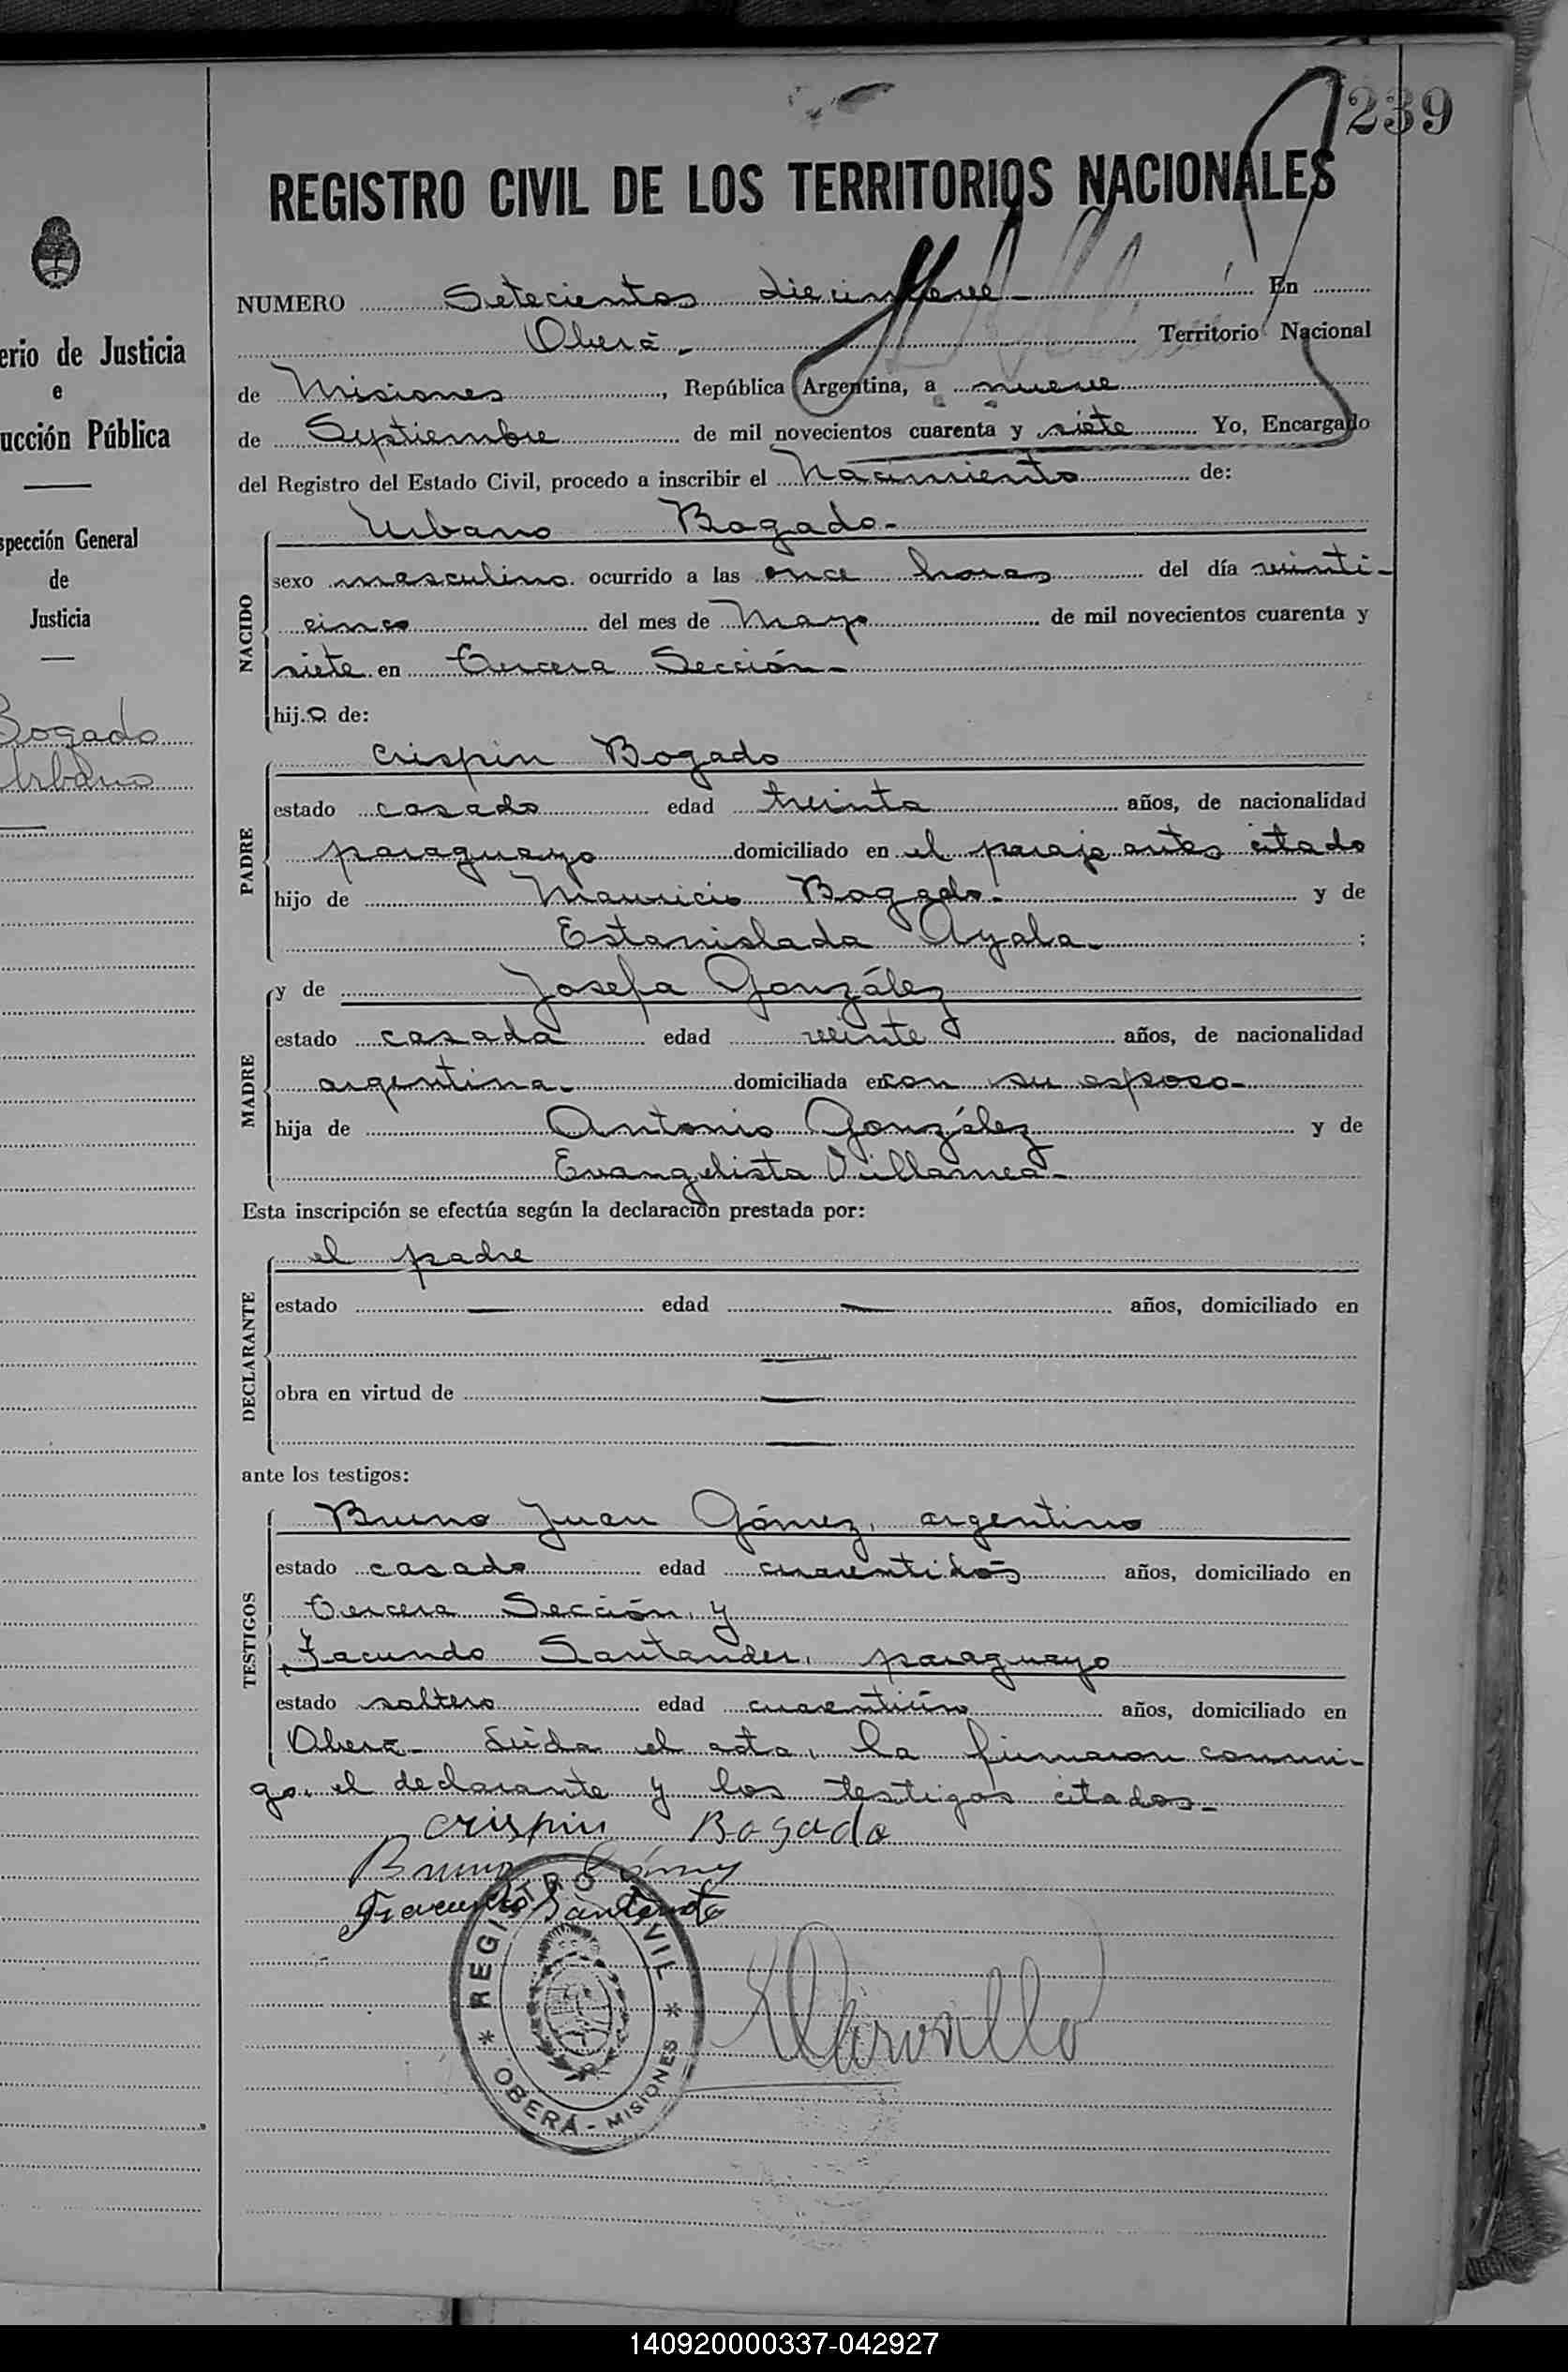 239
REGISTRO CIVIL DE LOS TERRITORIOS NACIONALES
erio de Justicia
e
ucción Pública
spección General
de
Justicia
Bogado
Urbano
NUMERO Setecientos diecinueve - En
Oberá - Territorio Nacional
de Misiones, República Argentina, a nueve
de Septiembre de mil novecientos cuarenta y siete Yo, Encargado
del Registro del Estado Civil, procedo a inscribir el Nacimiento de:
NACIDO
Urbano Bogado -
sexo masculino ocurrido a las once horas del día veinti-
cinco del mes de Mayo de mil novecientos cuarenta y
siete en Tercera Sección -
hijo de:
PADRE
Crispin Bogado
estado casado edad treinta años, de nacionalidad
paraguayo domiciliado en el paraje antes citado
hijo de Mauricio Bogado - y de
Estanislada Ayala - ;
MADRE
y de Josefa González
estado casada edad veinte años, de nacionalidad
argentina - domiciliada en con su esposo -
hija de Antonio González y de
Evangelista -
Esta inscripción se efectúa según la declaración prestada por:
DECLARANTE
el padre
estado — edad — años, domiciliado en
—
obra en virtud de —
—
ante los testigos:
TESTIGOS
Bruno Juan Gómez, argentino
estado casado edad cuarentidós años, domiciliado en
Tercera Sección, y
Facundo Santander, paraguayo
estado soltero edad cuarentiúno años, domiciliado en
Oberá - Leída el acta, la firmaron conmi-
go, el declarante y los testigos citados -
crispin Bogado
Bruno Gómez
Facundo
REGISTRO CIVIL
* OBERÁ - MISIONES *
140920000337-042927